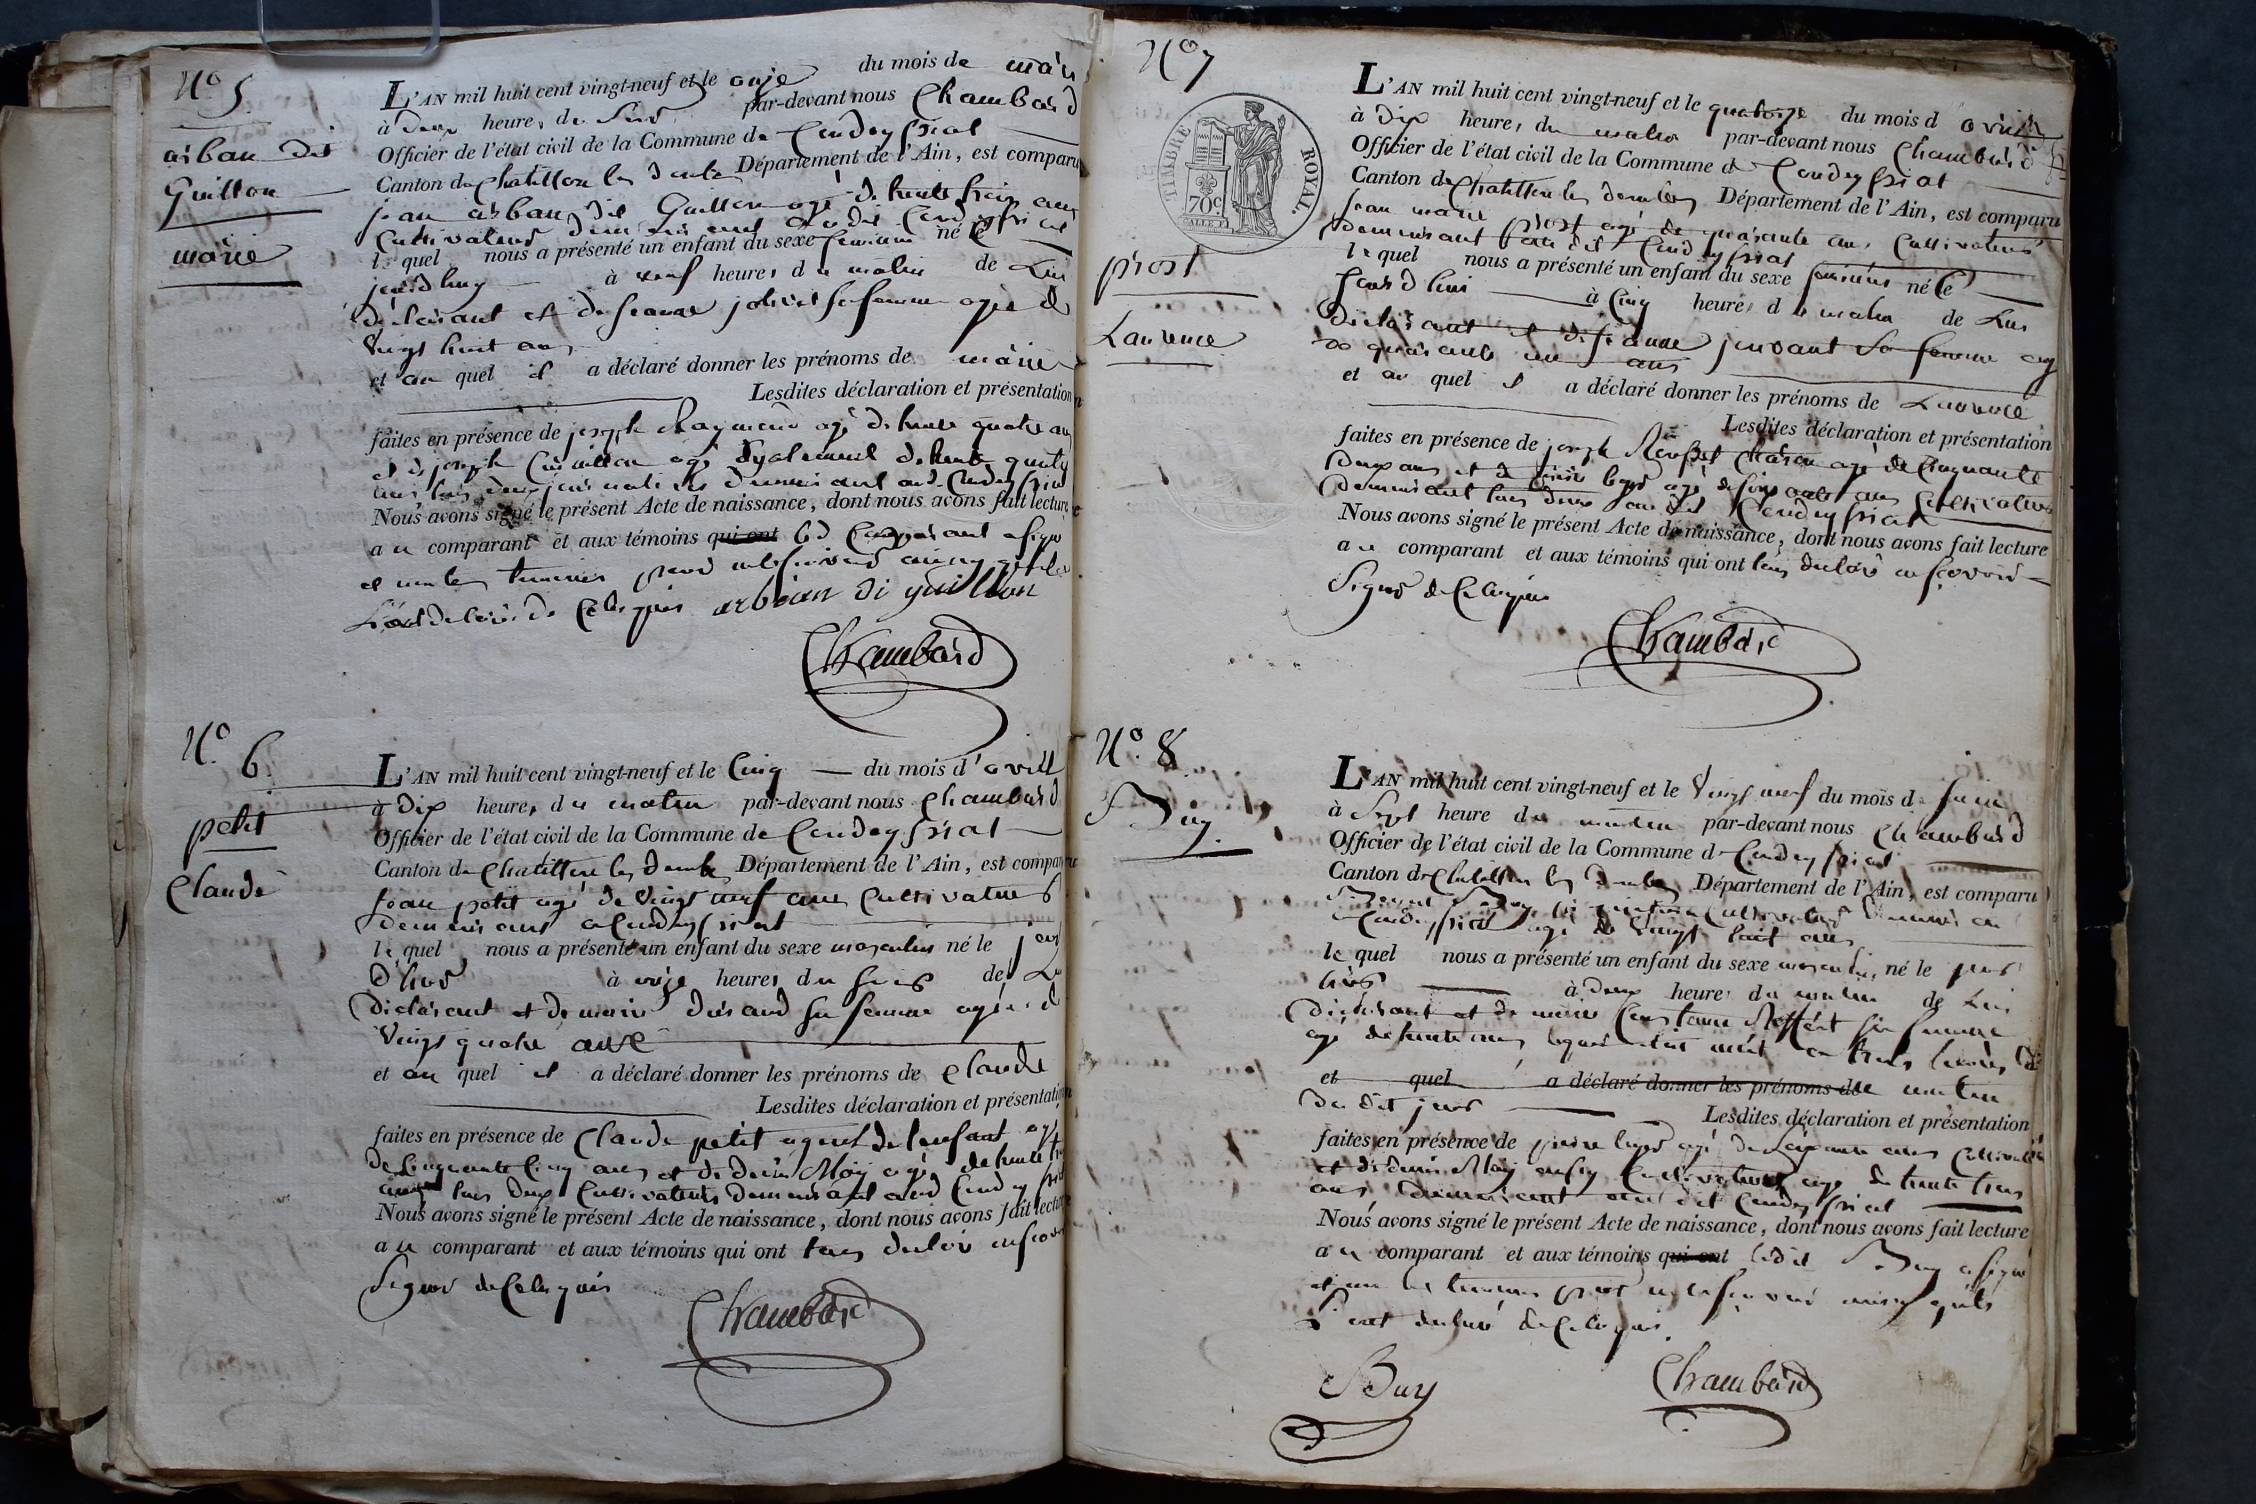 N° 5
arban dit
Guillon
marie
L'AN mil huit cent vingt-neuf et le onze du mois de mars
à deux heures du soir par-devant nous Chambard
Officier de l'état civil de la Commune de Condeyssiat
Canton de Chatillon les dombes Département de l'Ain, est comparu
jean arban dit Guillon agé de trente trois ans
cultivateur demeurant audit Condeyssiat
lequel nous a présenté un enfant du sexe feminin né le
jourdhuy à neuf heures du matin de Lui
déclarant et de jeanne jolivet sa femme agée de
vingt huit ans
et au quel il a déclaré donner les prénoms de marie
Lesdites déclaration et présentation
faites en présence de joseph agé de trente quatre ans
et de joseph agé également de trente quatre
ans tous deux demeurant aud. Condeyssiat
Nous avons signé le présent Acte de naissance, dont nous avons fait lecture
au comparant et aux témoins qui ont led comparant a signé
et non les temoins pour ne savoir ainsi qu'ils
l'ont déclaré de ce requis arban di guillon
Chambard
N° 6
petit
Claude
L'AN mil huit cent vingt-neuf et le cinq du mois d'avril
à dix heures du matin par-devant nous Chambard
Officier de l'état civil de la Commune de Condeyssiat
Canton de Chatillon les dombes Département de l'Ain, est comparu
jean petit agé de vingt neuf ans cultivateur
demeurant a Condeyssiat
lequel nous a présenté un enfant du sexe masculin né le jour
d'hier à onze heures du soir de Lui
déclarant et de marie durand sa femme agée de
vingt quatre ans
et au quel il a déclaré donner les prénoms de Claude
Lesdites déclaration et présentation
faites en présence de Claude petit de l'enfant agé
de cinquante cinq ans et de denis Moiy agé de trente
tous deux cultivateurs demeurant aud Condeyssiat
Nous avons signé le présent Acte de naissance, dont nous avons fait lecture
au comparant et aux témoins qui ont tous declaré ne savoir
signer de ce requis
Chambard
N° 7
TIMBRE ROYAL.
70c.
prost
Laurence
L'AN mil huit cent vingt-neuf et le quatorze du mois d avril
à dix heures du matin par-devant nous Chambard
Officier de l'état civil de la Commune de Condeyssiat
Canton de Chatillon les dombes Département de l'Ain, est comparu
jean marie prost agé de quarante ans cultivateur
demeurant au dit Condeyssiat
lequel nous a présenté un enfant du sexe feminin né le
jourd'hui à cinq heures du matin de Lui
déclarant et de jeanne sa femme agé
de quarante un ans
et au quel il a déclaré donner les prénoms de Laurence
Lesdites déclaration et présentation
faites en présence de joseph agé de cinquante
deux ans et de agé de soixante ans cultivateurs
demeurant tous deux au dit Condeyssiat
Nous avons signé le présent Acte de naissance, dont nous avons fait lecture
au comparant et aux témoins qui ont tous declaré ne savoir
signer de ce requis
Chambard
N° 8
Buy
L'AN mil huit cent vingt-neuf et le vingt neuf du mois de juin
à sept heure du matin par-devant nous Chambard
Officier de l'état civil de la Commune de Condeyssiat
Canton de Chatillon les dombes Département de l'Ain, est comparu
Buy cultivateur demeurant au
Condeyssiat agé de vingt huit ans
lequel nous a présenté un enfant du sexe masculin, né le jour
à deux heures du matin de Lui
déclarant et de marie sa femme
agé de trente ans
et quel a déclaré donner les prénoms de matin
du dit jour Lesdites déclaration et présentation
faites en présence de pierre agé de soixante ans cultivateur
et de denis Moiy cultivateur agé de trente trois
ans demeurant au dit Condeyssiat
Nous avons signé le présent Acte de naissance, dont nous avons fait lecture
au comparant et aux témoins qui ont ledit Buy a signé
et non les temoins pour ne savoir ainsi qu'ils
l'ont declaré de ce requis.
Buy
Chambard